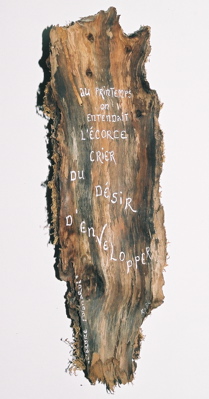 AU PRINTEMPS
ON
ENTENDAIT
L'ÉCORCE
CRIER
DU DÉSIR
D'ENVELOPPER